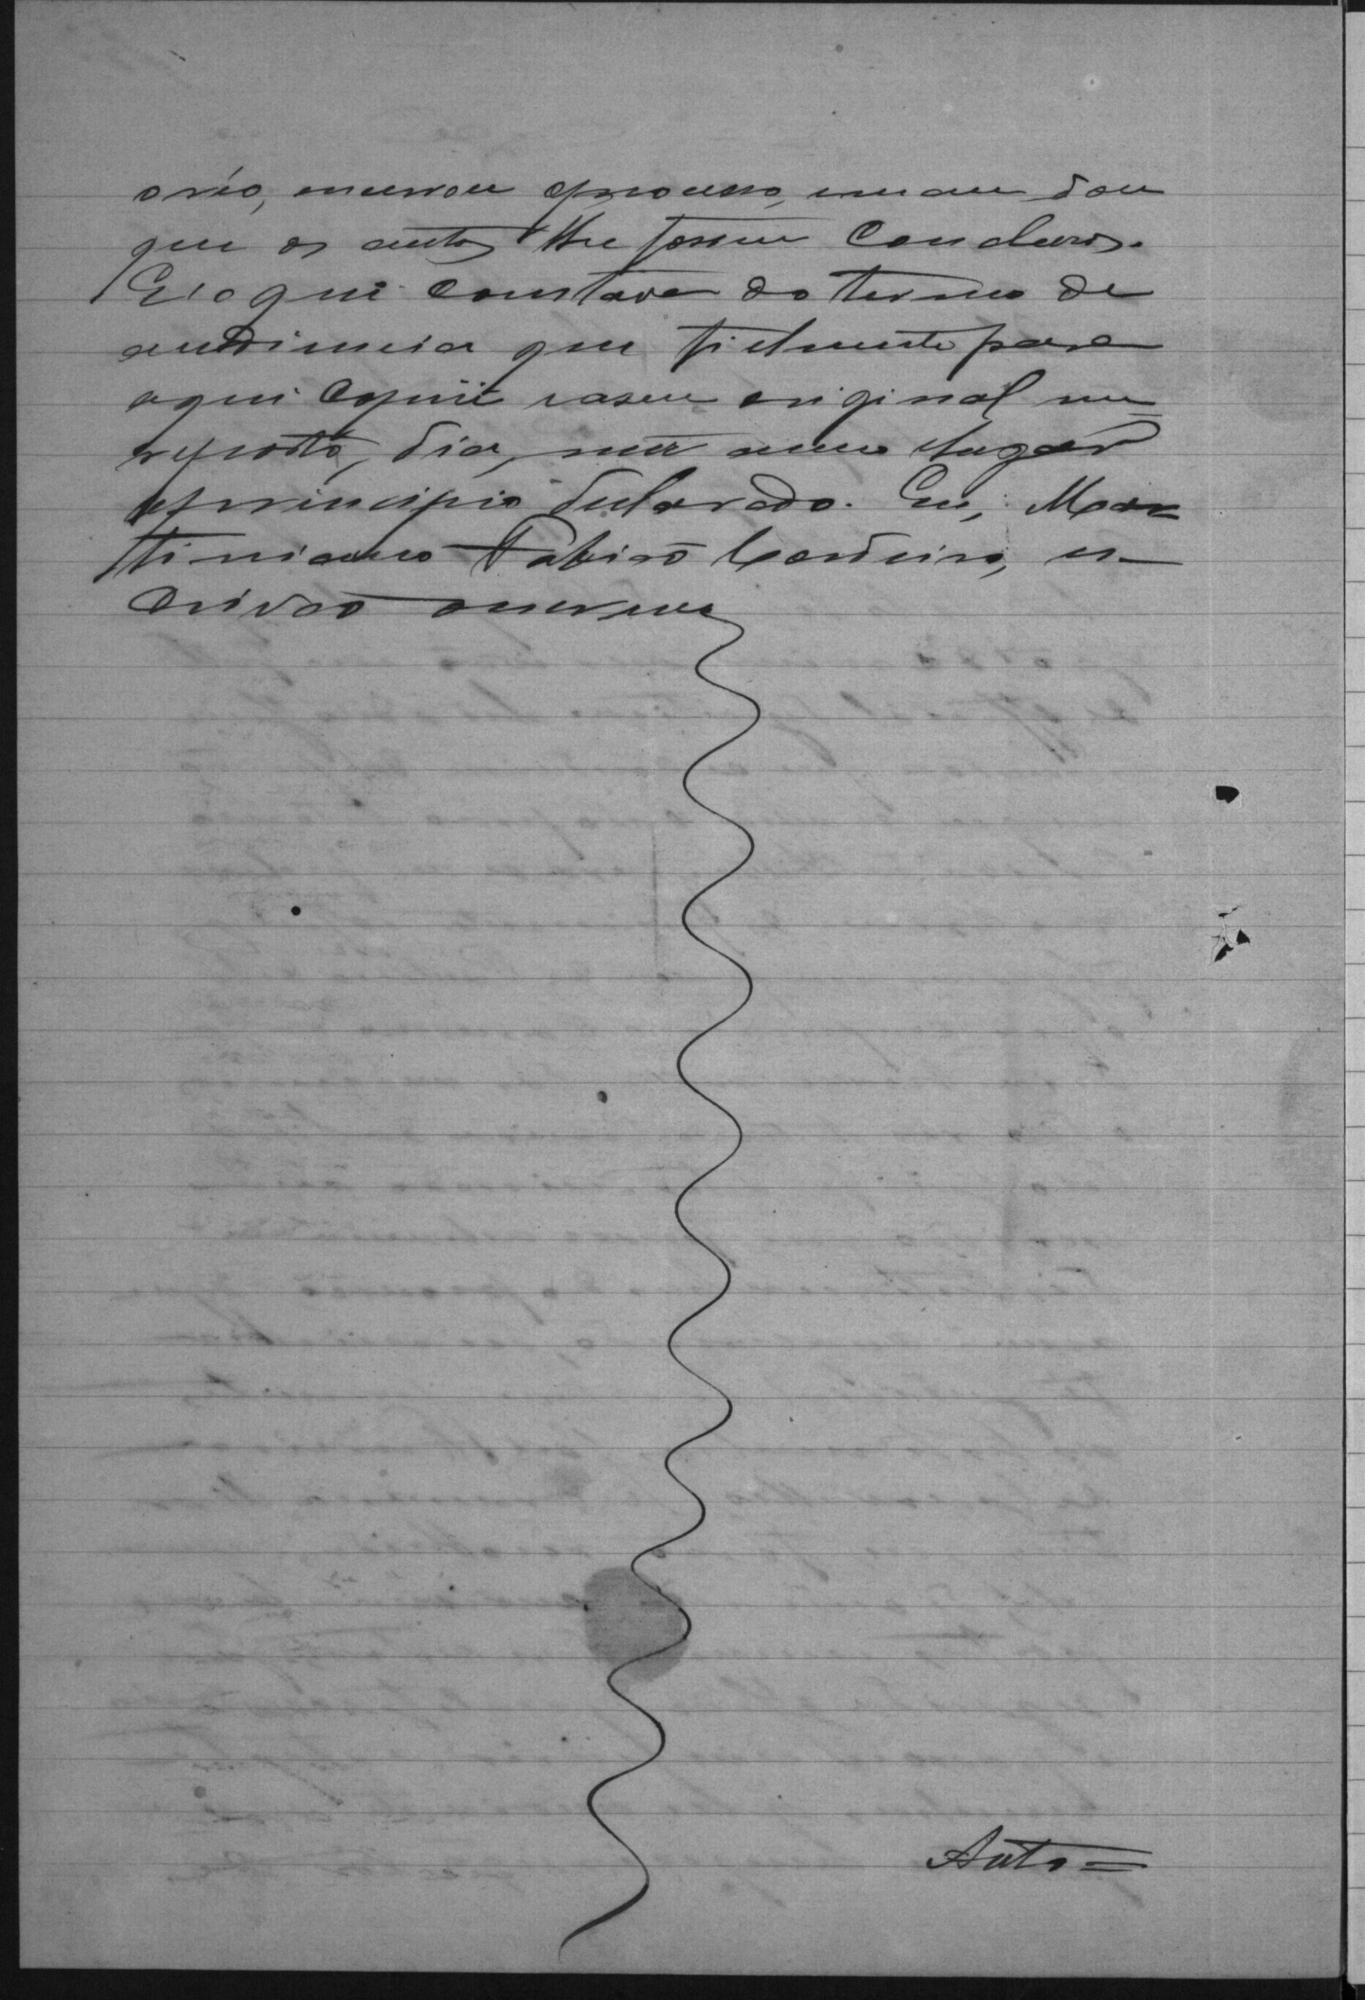 o réo, encerrou o processo, e mandou
que os autos lhe fossem conclusos.
E' o que constava do termo de
audiencia que fielmente para
aqui copiei e a seu original me
reporto, dia, mez anno e lugar
a principio declarado. Eu, Mar=
tiniano Cordeiro, es-
crivão o escrevi
Auto=